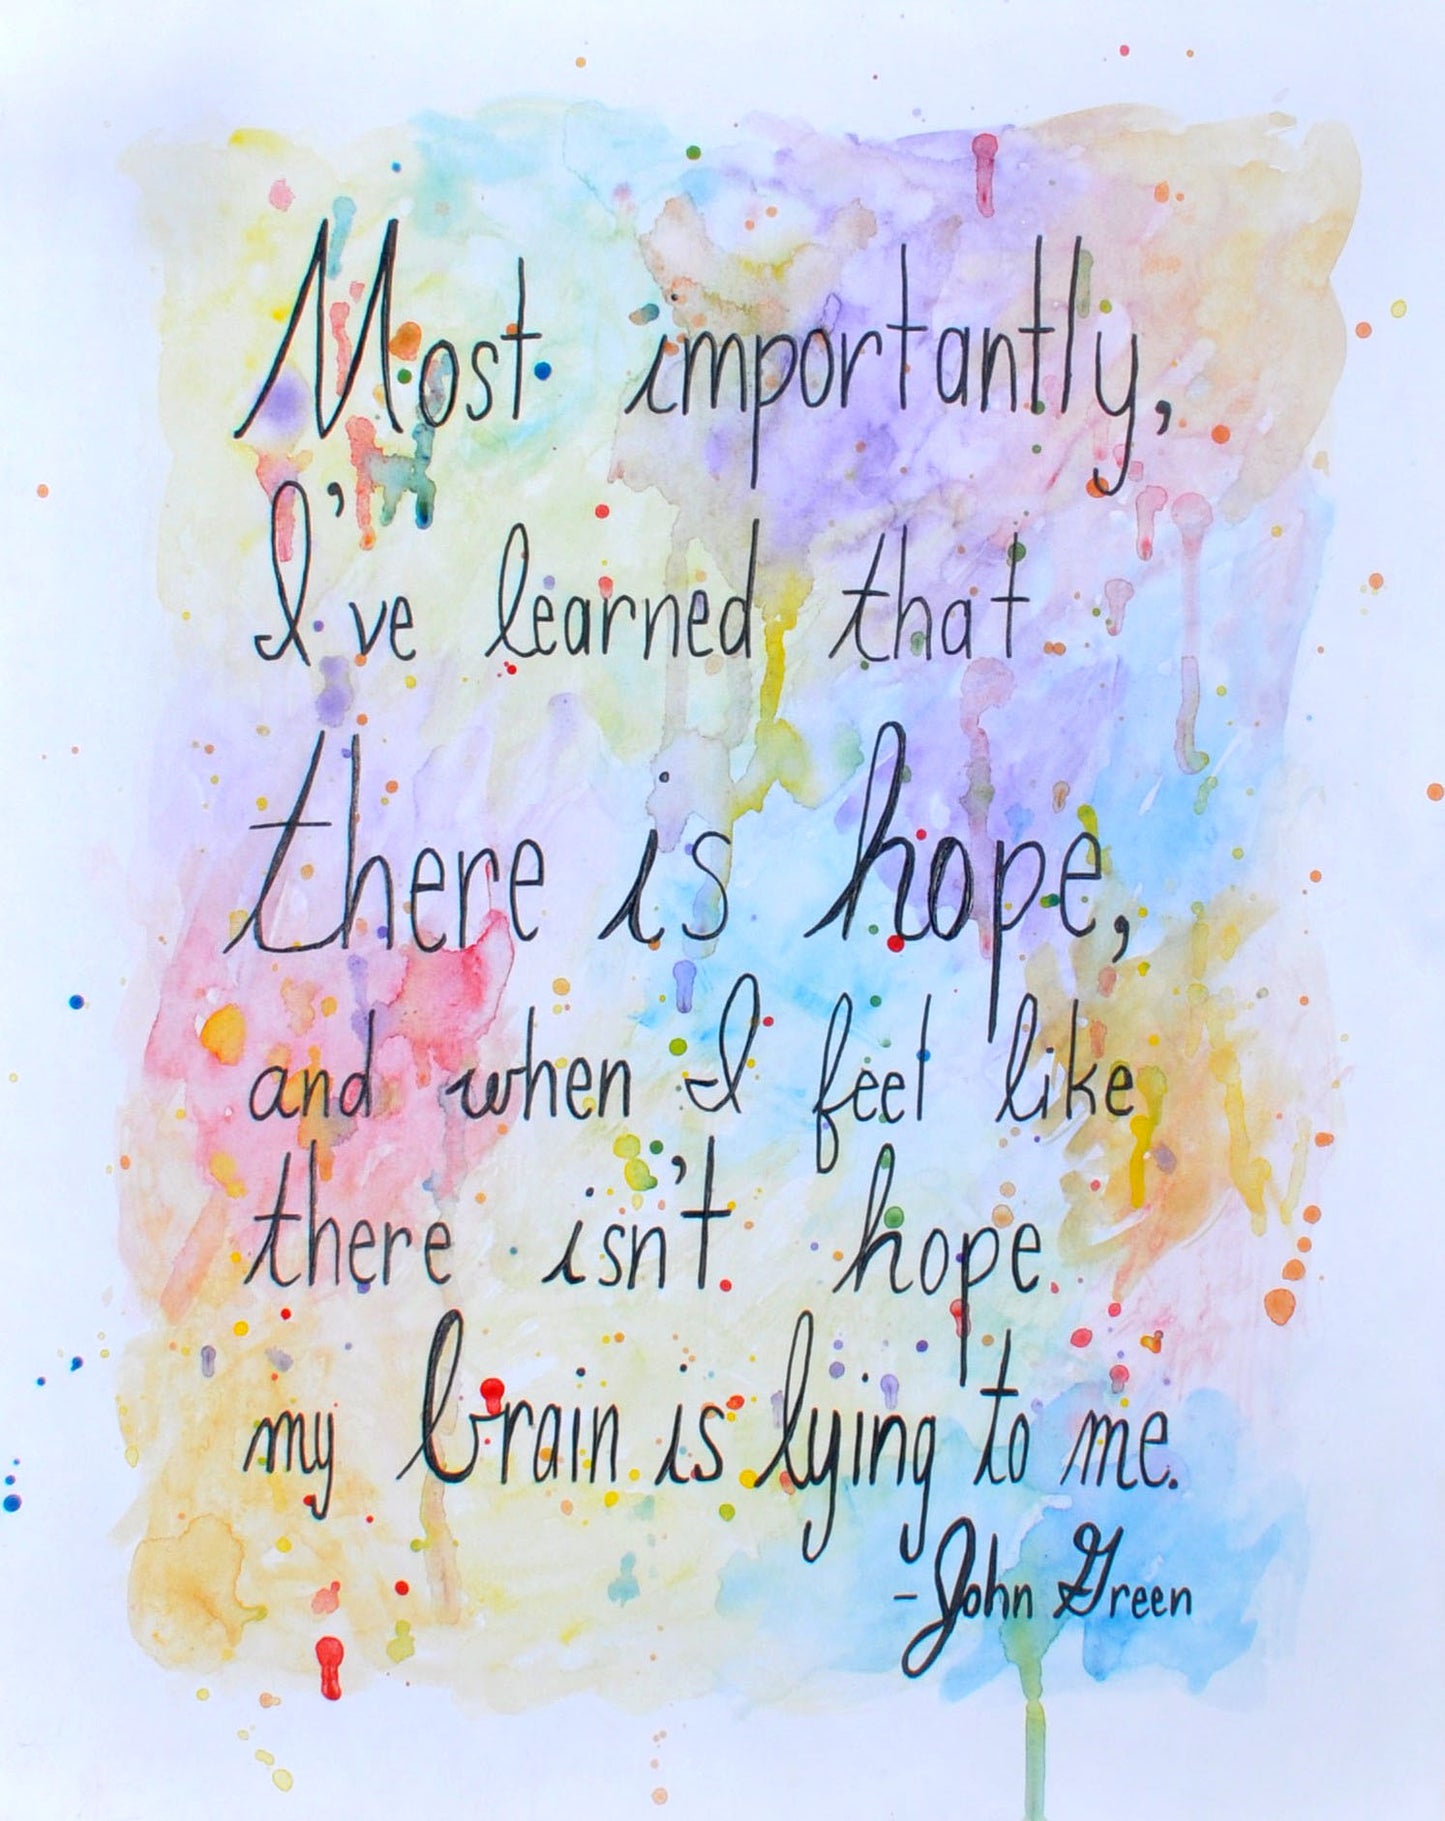 Most importantly,
I've learned that
there is hope,
and when I feel like
there isn't hope
my brain is lying to me.
- John Green